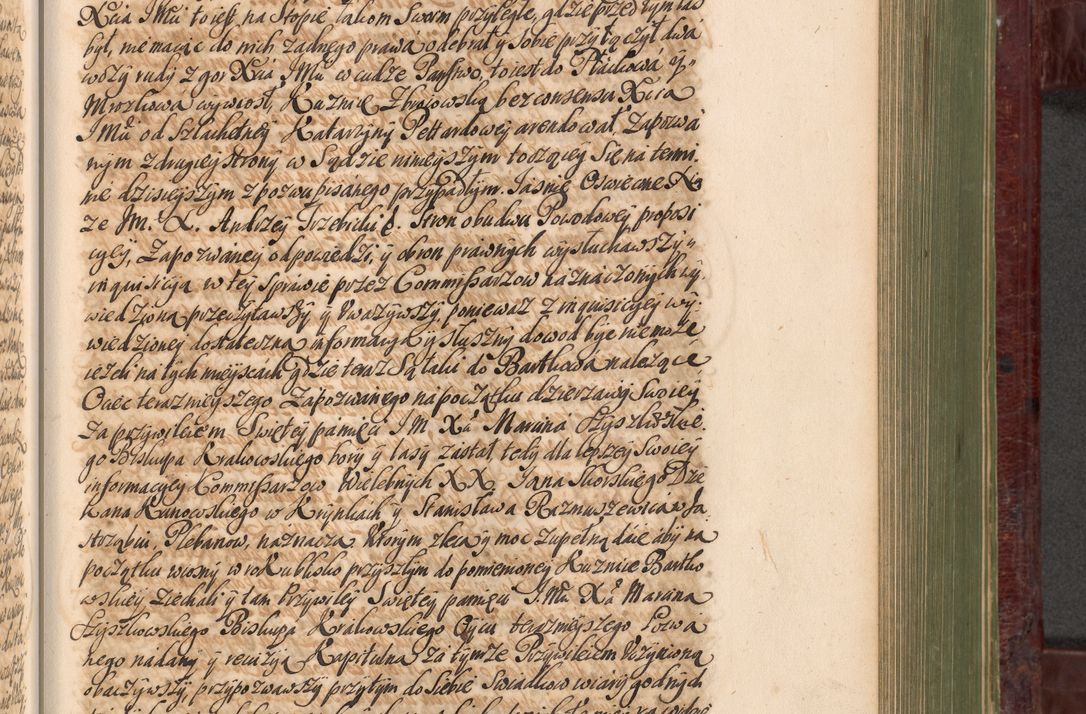 Xcia JMci to iest na Stopie takom Swem przyległe, gdzie przed tym las
był, nie maiąc do nich zadnego prawa odebrał y Sobie przyłączył dwa
wozy rudy z gor Xcia JMci w cudze Panstwo, to iest do Ptachowa y
Mrozkowa wywiozł, Kuznicę Zbroiowską bez consensu Xcia
JMci od Szlachetney Katarzyny Pettardowey arendował, Zapozwa
nym z drugiey strony w Sądzie ninieyszym toczącey się na termi
nie dzisieyszym z pozwu pisanego przypadłym. Jasnie Oswiecone Xią
ze JM. X. Andrzey Trzebicki B. Stron obudwu Powodowey proposi
cyey, Zapozwaney odpowiedzi, y obron prawnych wysłuchawszy
inquisicyą w tey Sprawie przez Commissarzow naznaczonych wy
wiedzioną przeczytawszy y Uwazywszy, poniewaz z inquisicyey wy
wiedzioney dostateczna informacya y słuszny dowod byc nie moze
iezeli na tych mieyscach gdzie teraz Są łąki do Bartkowa nalezące
Ociec teraznieyszego Zapozwanego na początku dzierzawy Swoiey
Za przywileiem Swiętey pamięci JM Xa Marcina Szyszkowskie
go Biskupa Krakowskiego bory y lasy zastał tedy dla lepszey Swoiey
informacyey Commissarzow Wielebnych XX. Jana Skorskiego Dzie
kana Kunowskiego w Krynkach y Stanisława Razmuszewica w Ja
strząbiu, Plebanow, naznacza. Ktorym zleca y moc zupełną daie aby na
początku wiosny w roku blisko przyszłym do pomienioney Kuznice Bartko
wskiey Ziechali y tam Przywiley Swiętey pamięci JMci Xa Marcina
Szyszkowskiego Biskupa Krakowskiego Oycu teraznieyszego Pozwa
nego nadany y rewizyą Kapitulną za tymze Przywileiem Uczynioną
obaczywszy, przypozwawszy przytym do Siebie Swiadkow wiary godnych